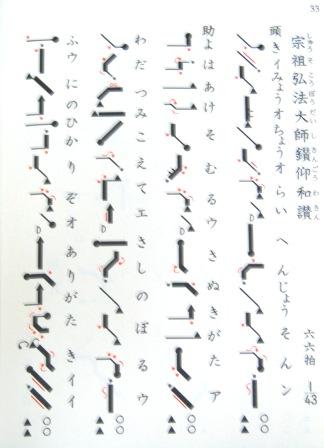 33
宗祖弘法大師鑽仰和讃
しゅうそこうぼうだいしさんごうわさん
六六拍 1-43
頭 きィみょうオちょうオらい へんじょうそんン
助 よはあけそむるウ さぬきがたア
わだつみこえてエ きしのぼるウ
ふウにのひかりぞオ ありがたきイイ